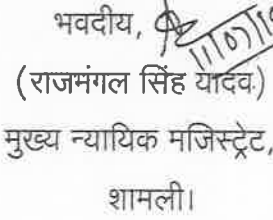 भवदीय,
(राजमंगल सिंह यादव)
मुख्य न्यायिक मजिस्ट्रेट,
शामली।